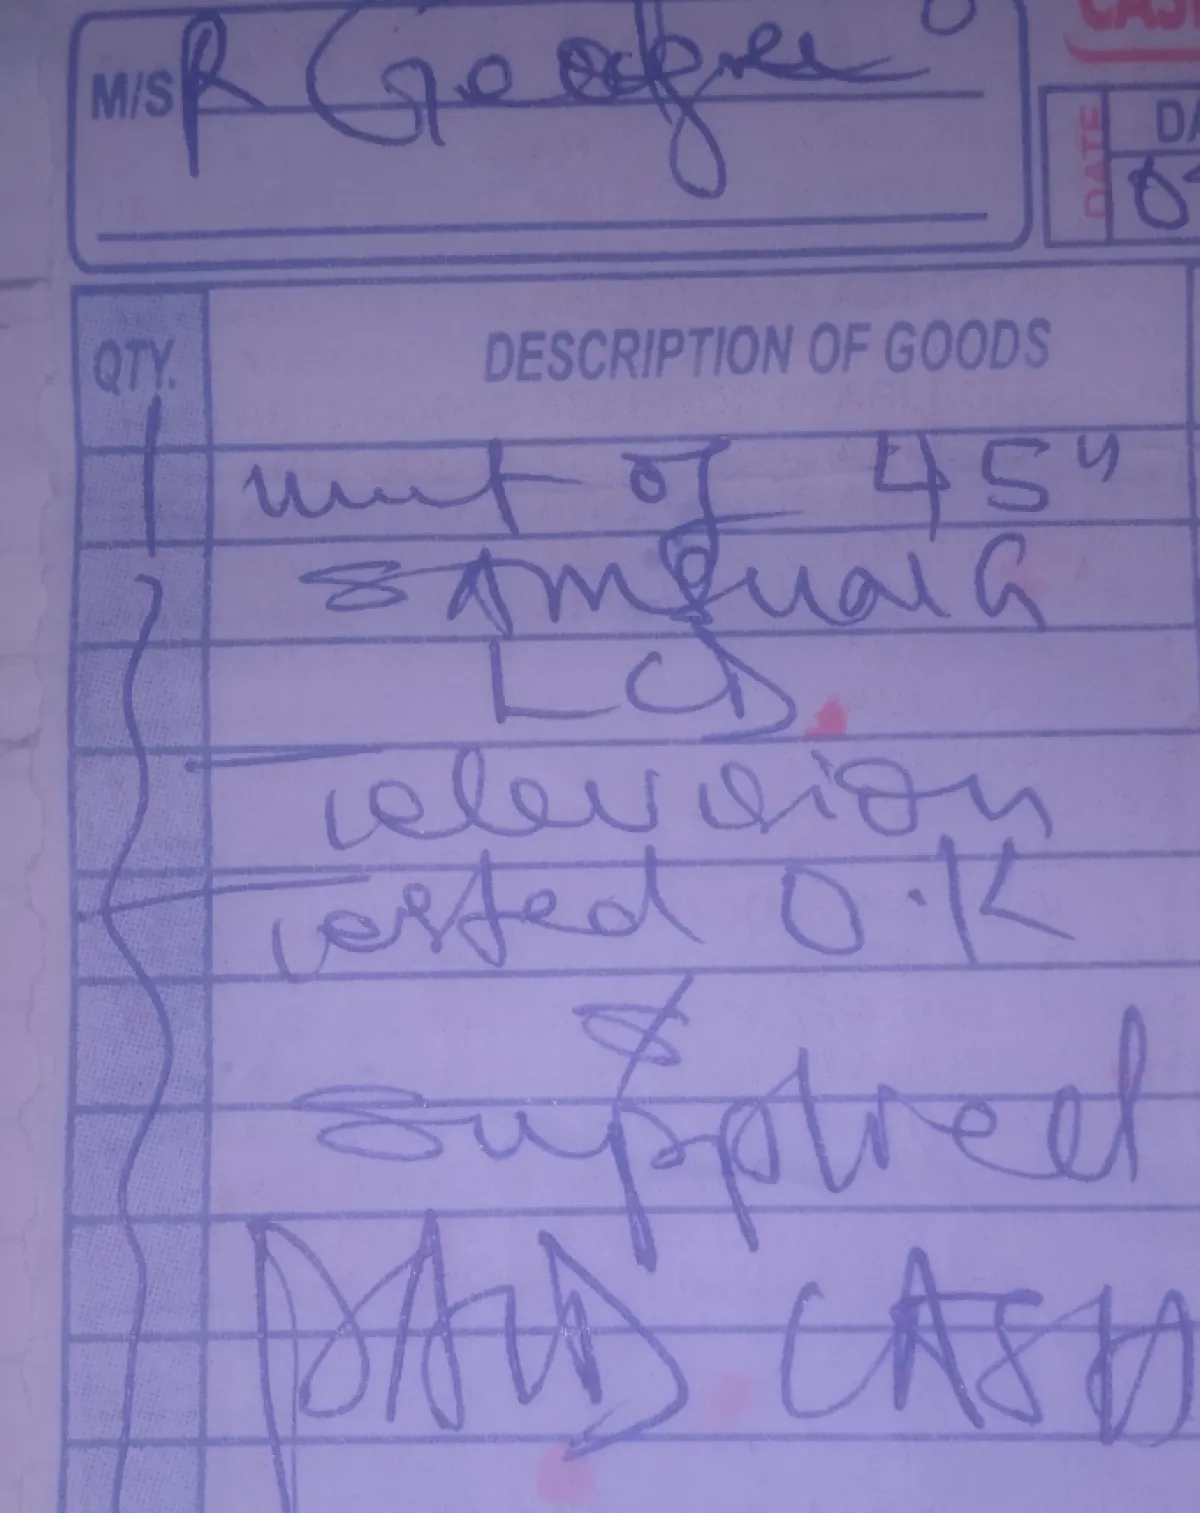 CAS
M/S R Geodfrey O
DATE DA
07
QTY. DESCRIPTION OF GOODS
1 unit of 45"
SAMSUNG
LCD
Television
Tested O.K
&
Supplied
PAID CASH